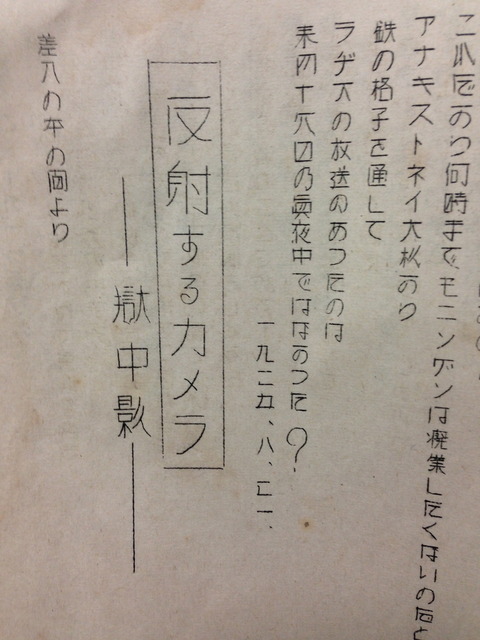 これだから何時まで、モニングンは廃業したくないの
アナキストネイ大杉から
鉄の格子を通して
ラヂオの放送のあつたのは
四十六日の真夜中ではなかつた?
一九二五、八、二一、
反射するカメラ
獄中影
差入の本の間より